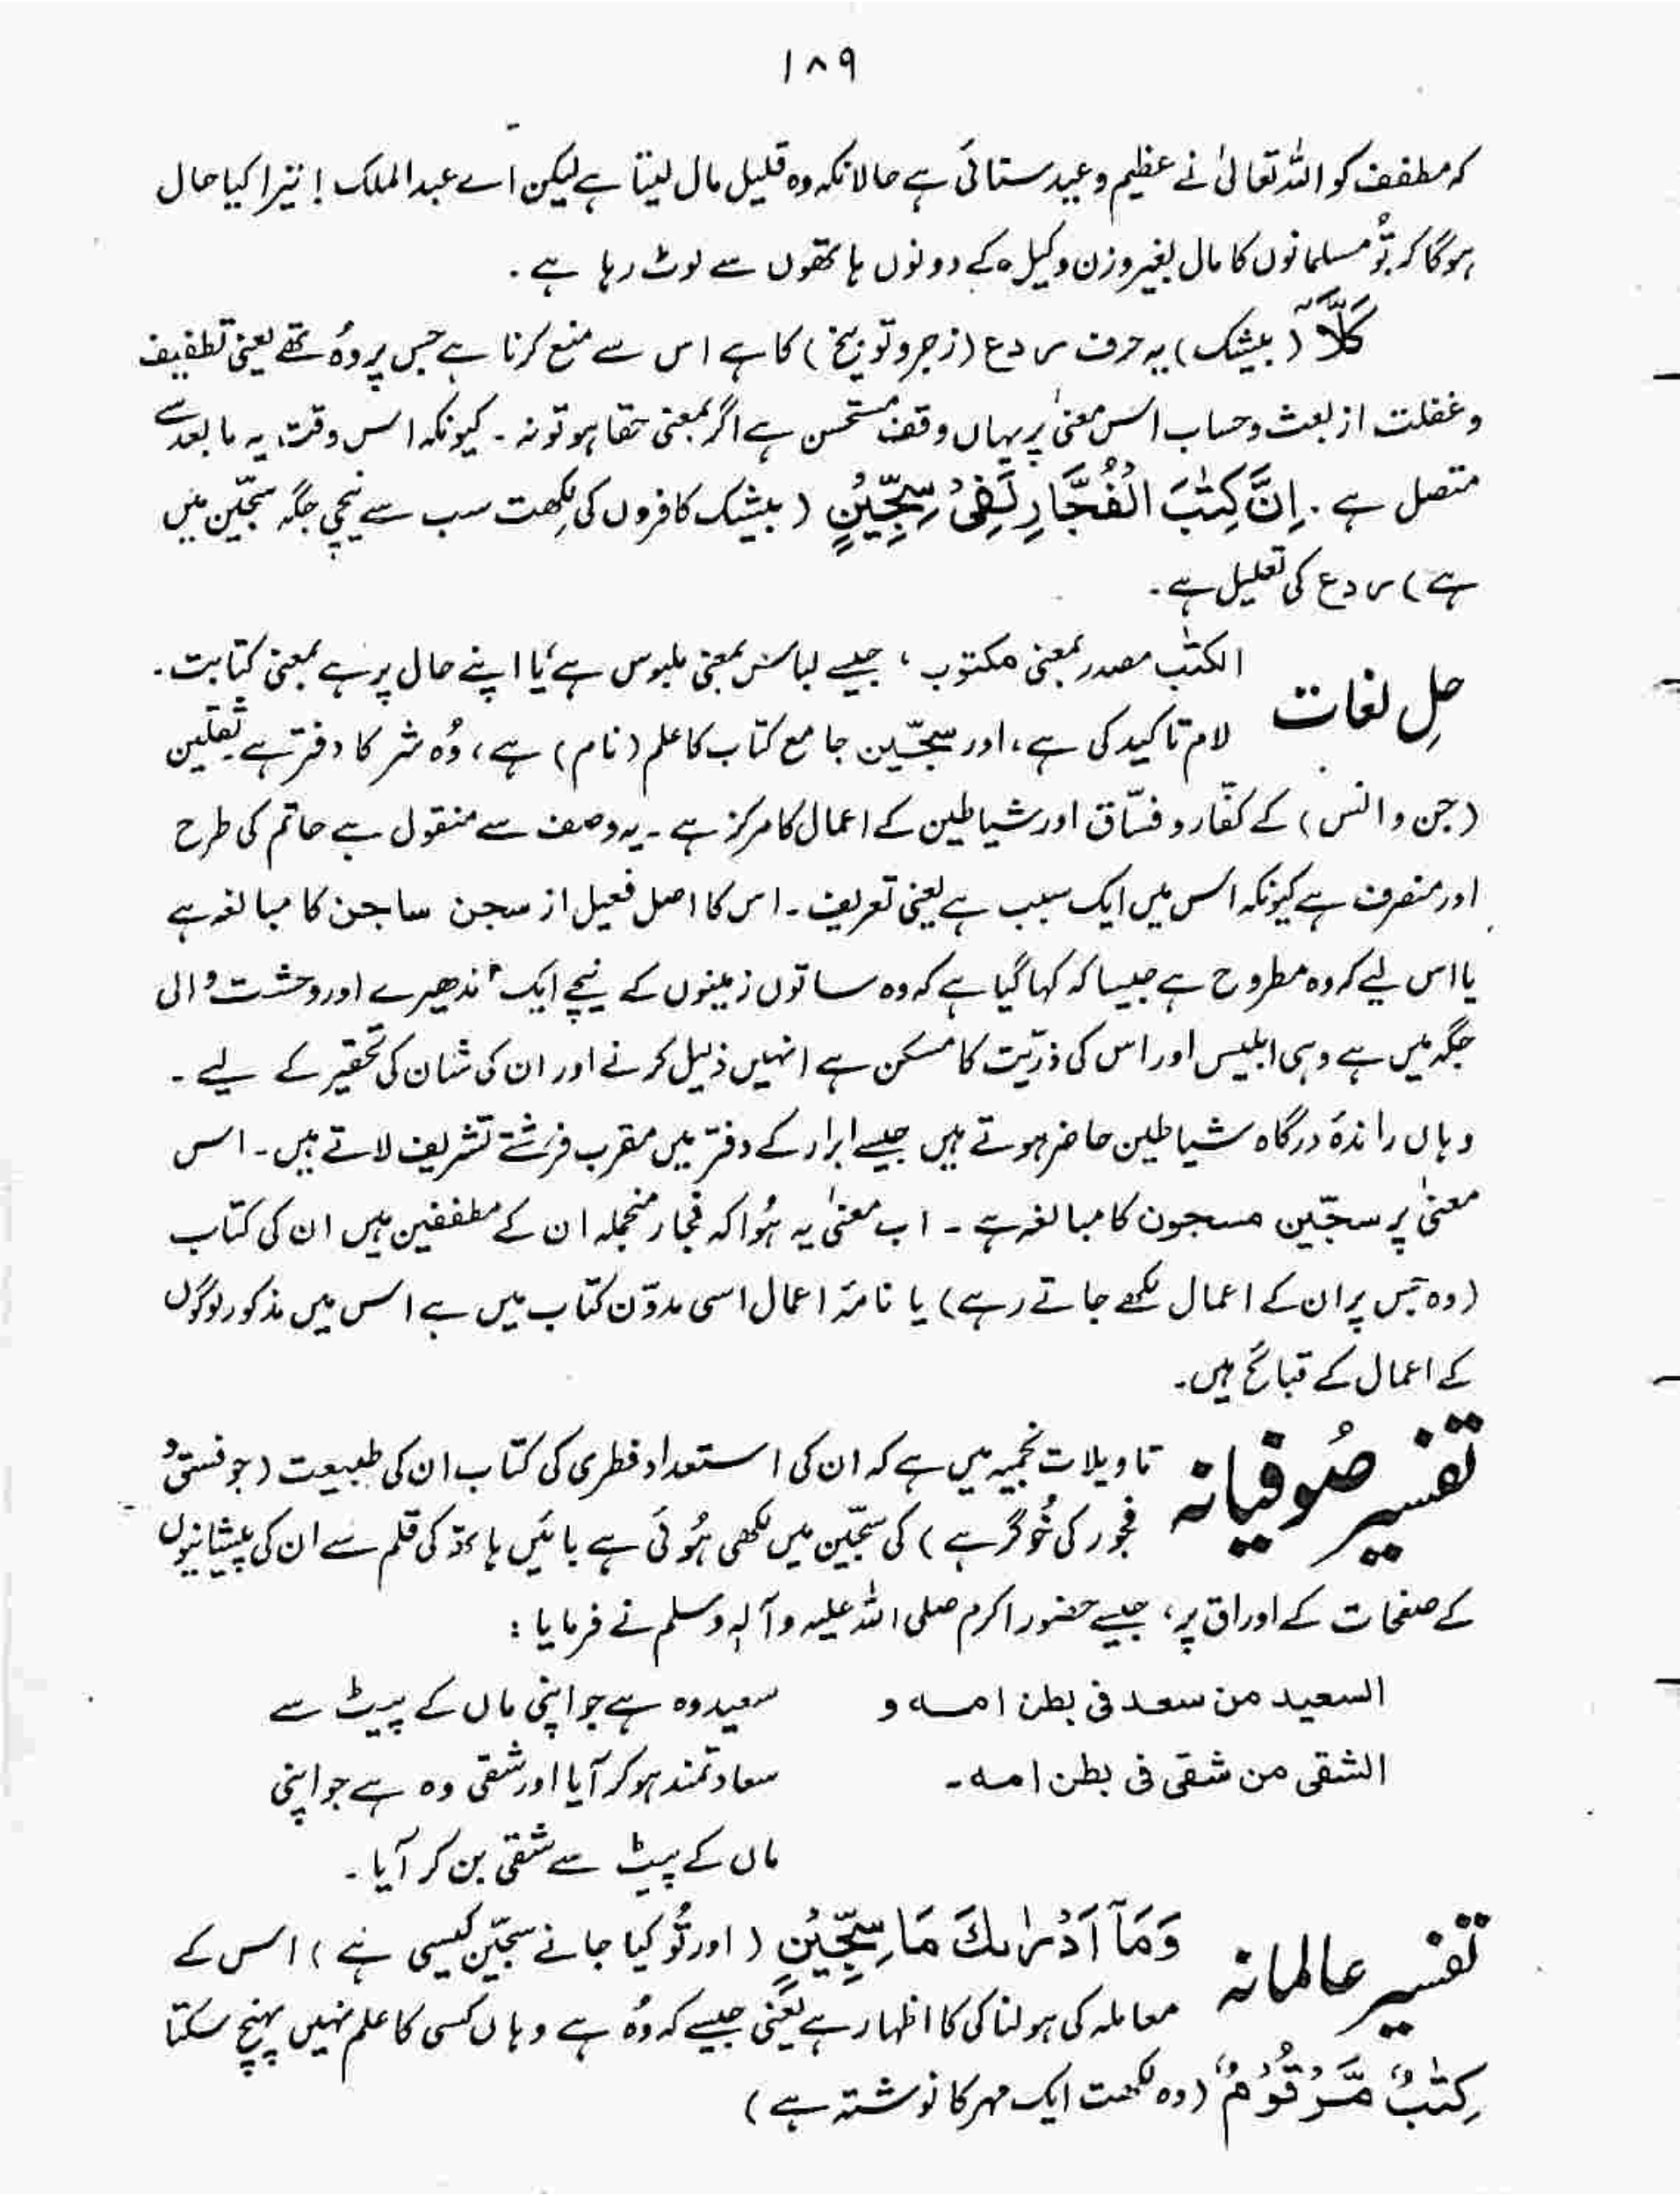 ۱۸۹
کہ مطفف کو اللہ تعالیٰ نے عظیم وعید سنائی ہے حالانکہ وہ قلیل مال لیتا ہے لیکن اے عبدالملک! تیرا کیا حال
ہوگا کہ تُو مسلمانوں کا مال بغیر وزن و کیلہ کے دونوں ہاتھوں سے لوٹ رہا ہے۔
كَلَّآ (بیشک) یہ حرف ردع (زجر و توبیخ) کا ہے اس سے منع کرنا ہے جس پر وُہ تھے یعنی تطفیف
و غفلت از بعث و حساب اس معنیٰ پر یہاں وقف مستحسن ہے اگر بمعنی حقا ہو تو نہ۔ کیونکہ اس وقت یہ مابعد سے
متصل ہے۔ اِنَّ كِتٰبَ الْفُجَّارِ لَفِىْ سِجِّيْنٍ (بیشک کافروں کی لکھت سب سے نیچی جگہ سجّین میں
ہے) ردع کی تعلیل ہے۔
حلِ لغات الکتٰب مصدر بمعنی مکتوب، جیسے لباس بمعنی ملبوس ہے یا اپنے حال پر ہے بمعنی کتابت۔
لام تاکید کی ہے، اور سجّین جامع کتاب کا علم (نام) ہے، وُہ شر کا دفتر ہے۔ ثقلین
(جن و انس) کے کفّار و فسّاق اور شیاطین کے اعمال کا مرکز ہے۔ یہ وصف سے منقول ہے حاتم کی طرح
اور منصرف ہے کیونکہ اس میں ایک سبب ہے یعنی تعریف۔ اس کا اصل فعیل از سجن ساجن کا مبالغہ ہے
یا اس لیے کہ وہ مطروح ہے جیسا کہ کہا گیا ہے کہ وہ ساتوں زمینوں کے نیچے ایک اندھیرے اور وحشت والی
جگہ میں ہے وہی ابلیس اور اس کی ذرّیت کا مسکن ہے انہیں ذلیل کرنے اور ان کی شان کی تحقیر کے لیے۔
وہاں راندۂ درگاہ شیاطین حاضر ہوتے ہیں جیسے ابرار کے دفتر میں مقرب فرشتے تشریف لاتے ہیں۔ اس
معنیٰ پر سجّین مسجون کا مبالغہ ہے۔ اب معنیٰ یہ ہُوا کہ فجار منجملہ ان کے مطففین ہیں ان کی کتاب
(وہ جس پر ان کے اعمال لکھے جاتے رہے) یا نامۂ اعمال اسی مدوّن کتاب میں ہے اس میں مذکور لوگوں
کے اعمال کے قبائح ہیں۔
تفسیر صُوفیانہ تاویلات نجمیہ میں ہے کہ ان کی استعداد فطری کی کتاب ان کی طبیعت (جو فسق و
فجور کی خُوگر ہے) کی سجّین میں لکھی ہُوئی ہے بائیں ہاتھ کی قلم سے ان کی پیشانیوں
کے صفحات کے اوراق پر، جیسے حضور اکرم صلی اللہ علیہ وآلہ وسلم نے فرمایا:
السعيد من سعد فى بطن امه و سعید وہ ہے جو اپنی ماں کے پیٹ سے
الشقى من شقى فى بطن امه۔ سعادتمند ہو کر آیا اور شقی وہ ہے جو اپنی
ماں کے پیٹ سے شقی بن کر آیا۔
تفسیر عالمانہ وَمَآ اَدْرٰىكَ مَا سِجِّيْنٍ (اور تُو کیا جانے سجّین کیسی ہے) اس کے
معاملہ کی ہولناکی کا اظہار ہے یعنی جیسے کہ وُہ ہے وہاں کسی کا علم نہیں پہنچ سکتا
كِتٰبٌ مَّرْقُوْمٌ (وہ لکھت ایک مہر کا نوشتہ ہے)